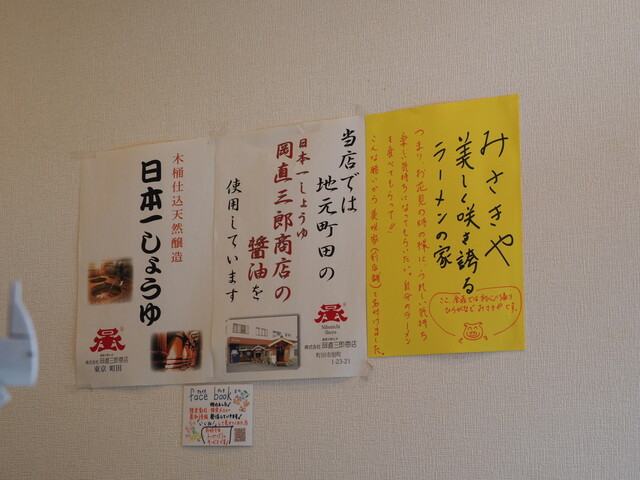 みさきや
美しく咲き誇る
ラーメンの家
つまり、お花見の時の様に、うれしい気持ち
楽しい気持ちになってもらいたい、自分のラーメン
を食べてもらって!!
こんな願いから美咲家
と名付けました。
ひらがなで みさきや です。
当店では
地元町田の
日本一しょうゆ
岡直三郎商店の
醤油を
使用しています
Nihonichi
Shoyu
株式会社 岡直三郎商店
町田市旭町
1-23-21
木桶仕込天然醸造
日本一しょうゆ
株式会社 岡直三郎商店
東京 町田
face book